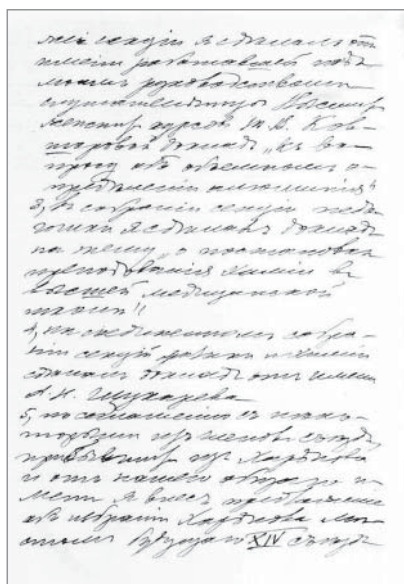 же секціи я сдѣлалъ отъ
имени работавшей подъ
моимъ руководствомъ
слушательницы Высших
Женских курсов М. В. Ков-
шаровой докладъ „къ во-
просу объ объемномъ о-
предѣленіи алюминія"
3, въ собраніи секціи педа-
гогики я сдѣлалъ докладъ
на тему „о постановкѣ
преподаванія химіи въ
высшей медицинской
школѣ"
4, на соединенномъ собра-
ніи секцій физики и химіи
сдѣлалъ докладъ отъ имени
А. Н. Щукарева
5, по соглашенію съ нѣко-
торыми изъ членовъ съѣзда,
прибывших изъ Харькова
и отъ нашего общаго и-
мени я внесъ предложеніе
объ избраніи Харькова мѣ-
стомъ будущаго XIV съѣзда